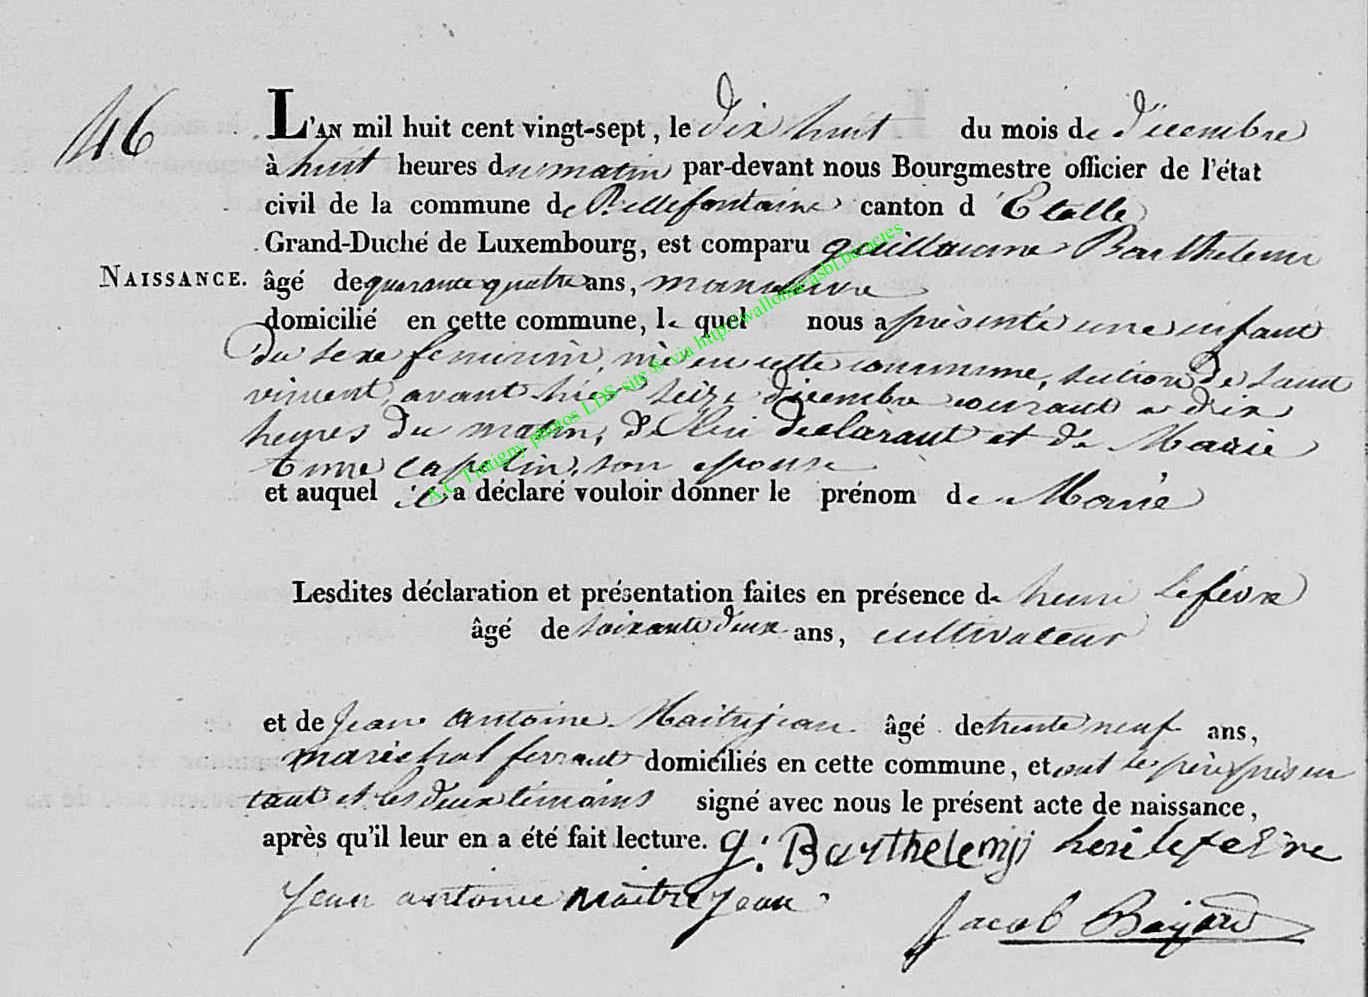 46
L'AN mil huit cent vingt-sept, le dix huit du mois de décembre
à huit heures du matin par-devant nous Bourgmestre officier de l'état
civil de la commune de Bellefontaine canton d'Etalle
Grand-Duché de Luxembourg, est comparu guillaume Barthelemi
NAISSANCE. âgé de quarante quatre ans, manœuvre
domicilié en cette commune, le quel nous a présenté une enfant
du sexe feminin, née en cette commune, section de saint
vincent, avant hier seize décembre courant a dix
heures du matin, de lui déclarant et de Marie
Anne capelin, son epouse
et auquel il a déclaré vouloir donner le prénom de Marie
Lesdites déclaration et présentation faites en présence de henri Lefévre
âgé de soixante deux ans, cultivateur
et de Jean antoine Maitrejean âgé de trente neuf ans,
maréchal ferrant domiciliés en cette commune, et ont le père présen
tant et les deux témoins signé avec nous le présent acte de naissance,
après qu'il leur en a été fait lecture. g. Barthelemij heri lefeevre
Jean antoine maitrejean
Jacob Bayard
A.C Tintigny photos LDS-site © via http://wallonia.asbl.be/actes